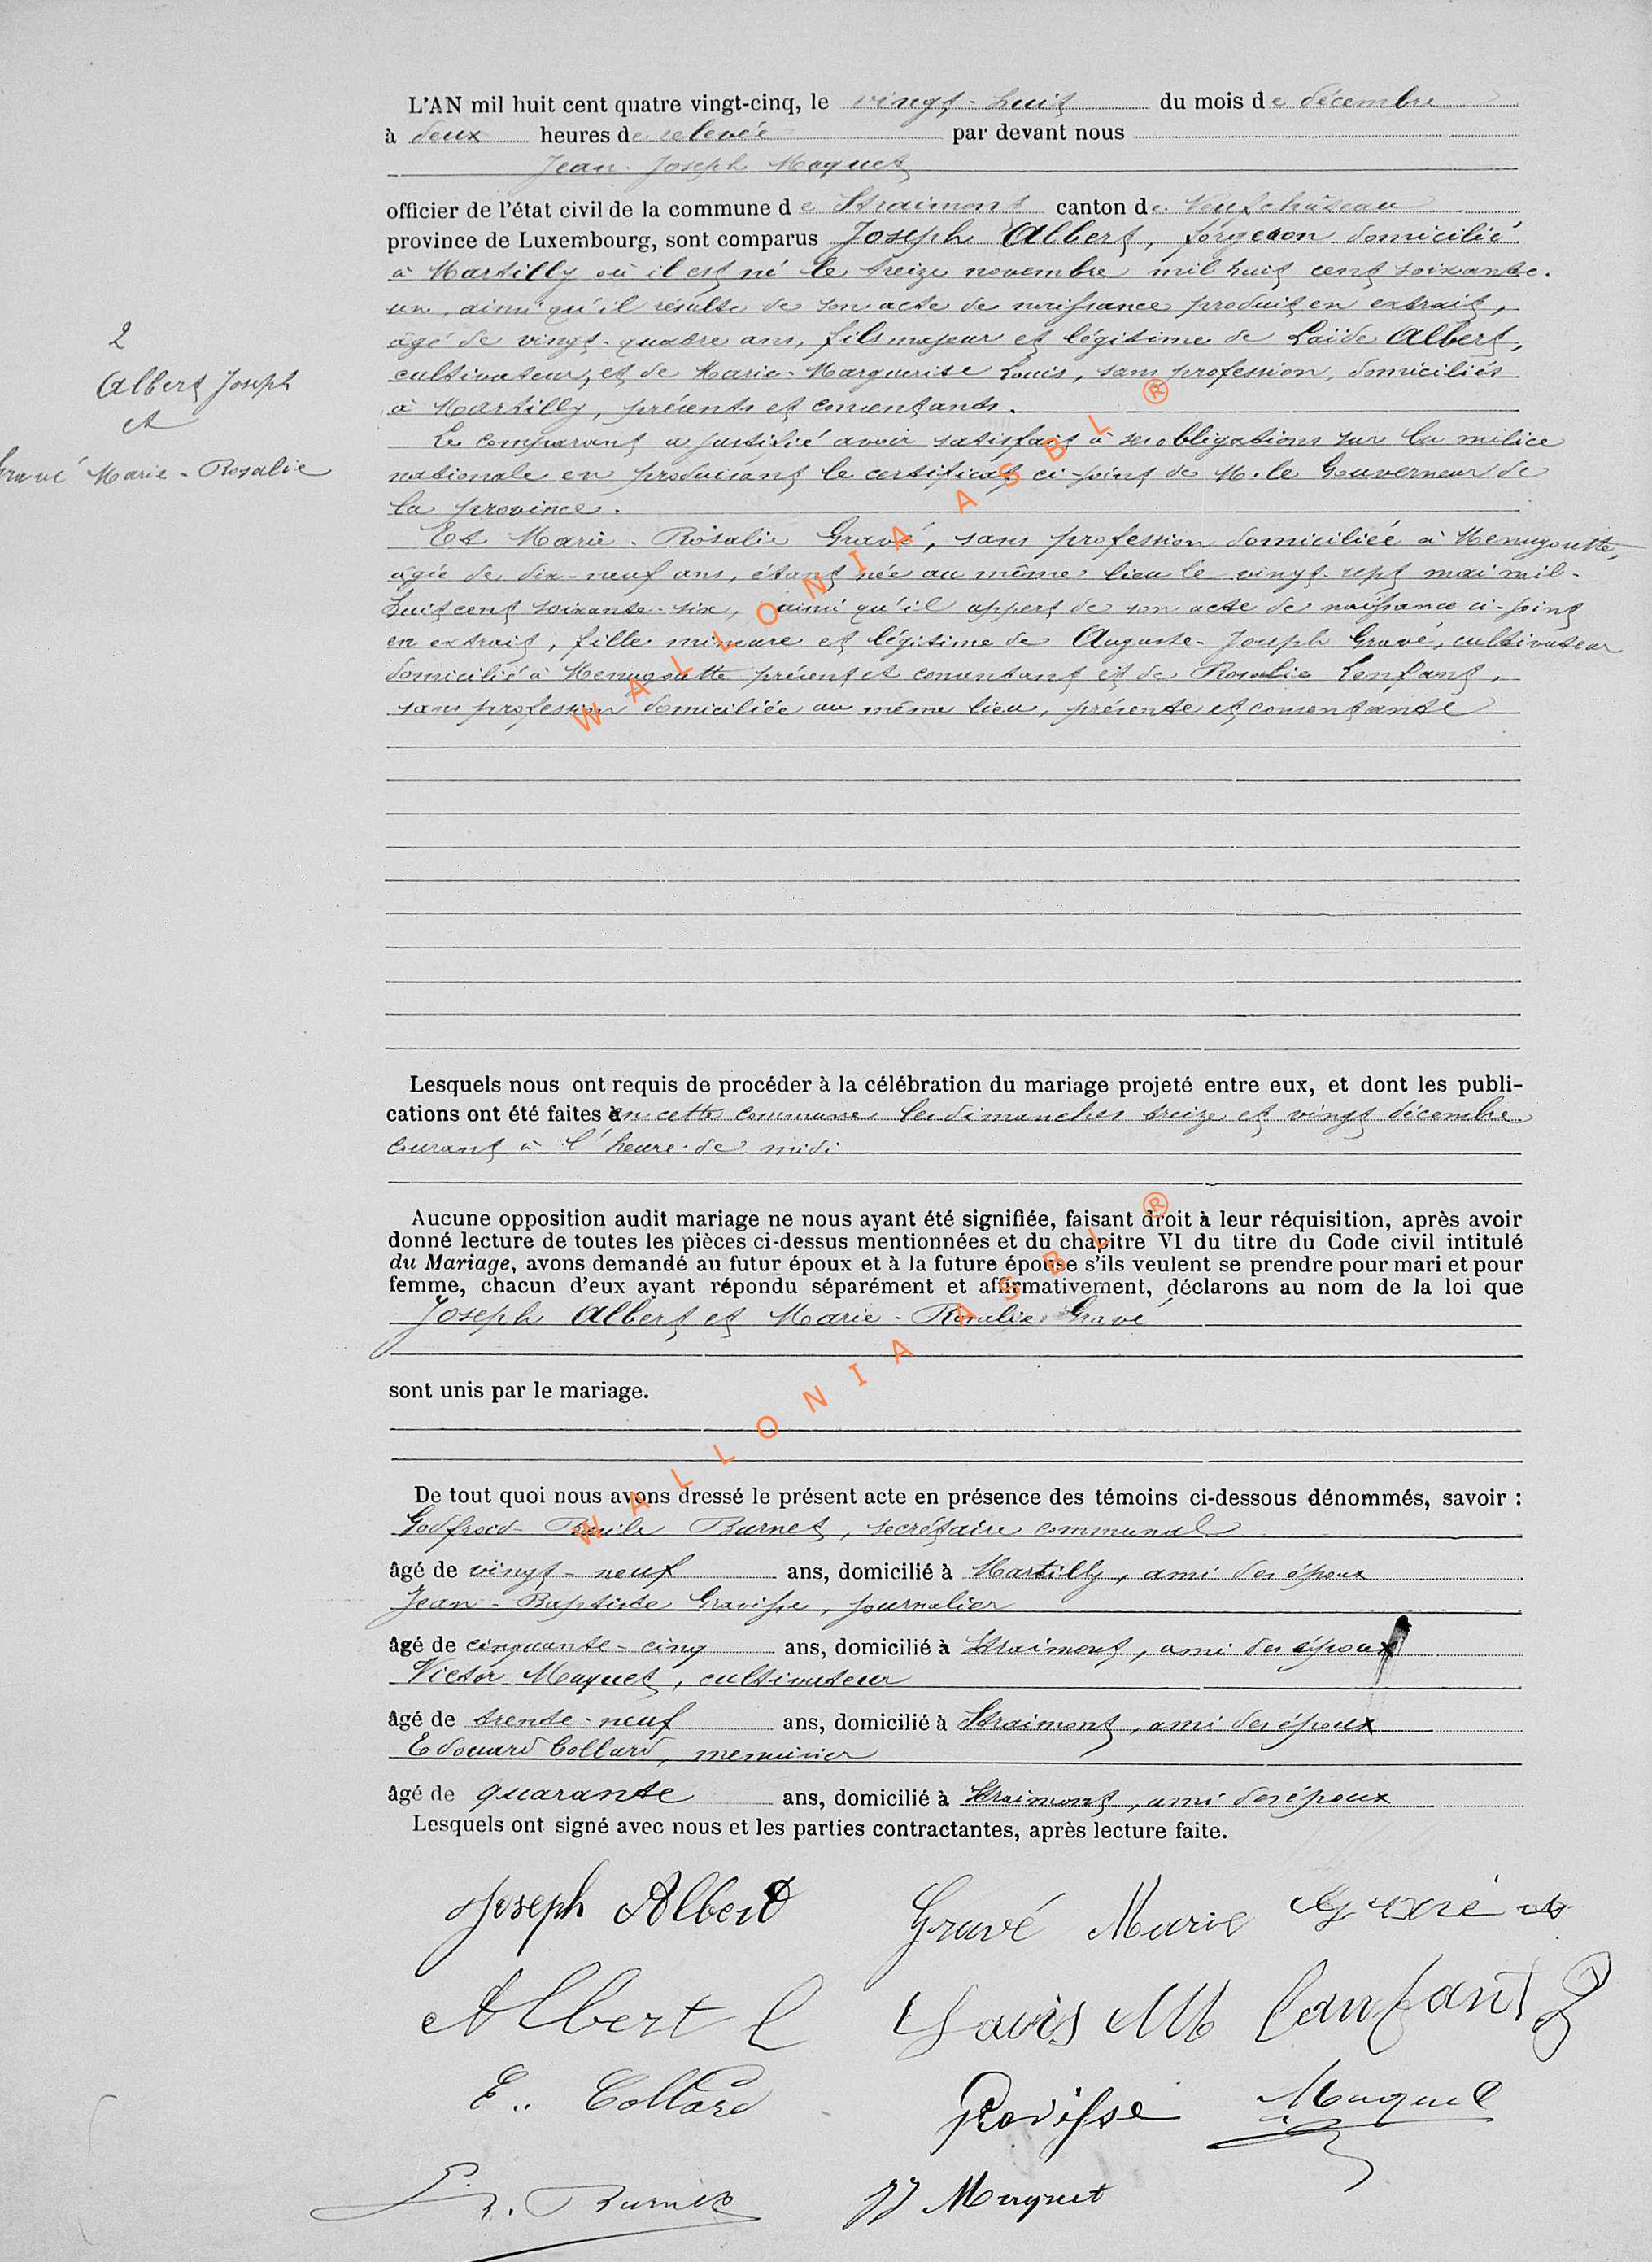 L'AN mil huit cent quatre vingt-cinq, le vingt-huit du mois de décembre
à deux heures de relevée par devant nous
Jean-Joseph Maquet
officier de l'état civil de la commune de Straimont canton de Neufchâteau
province de Luxembourg, sont comparus Joseph Albert, forgeron domicilié
à Martilly où il est né le treize novembre mil huit cent soixante-
un, ainsi qu'il résulte de son acte de naissance produit en extrait,
âgé de vingt-quatre ans, fils majeur et légitime de Laïde Albert,
cultivateur, et de Marie-Marguerite Louis, sans profession, domiciliés
à Martilly, présents et consentants.
Le comparant a justifié avoir satisfait à ses obligations sur la milice
nationale en produisant le certificat ci-joint de M. le Gouverneur de
la province.
Et Marie-Rosalie Gravé, sans profession domiciliée à Menugoutte,
âgée de dix-neuf ans, étant née au même lieu le vingt-sept mai mil-
huit cent soixante-six, ainsi qu'il appert de son acte de naissance ci-joint
en extrait, fille mineure et légitime de Auguste-Joseph Gravé, cultivateur
domicilié à Menugoutte présent et consentant et de Rosalie Lenfant,
sans profession domiciliée au même lieu, présente et consentante
2
Albert Joseph
et
Gravé Marie-Rosalie
Lesquels nous ont requis de procéder à la célébration du mariage projeté entre eux, et dont les publi-
cations ont été faites en cette commune les dimanches treize et vingt décembre
courant à l'heure de midi
Aucune opposition audit mariage ne nous ayant été signifiée, faisant droit à leur réquisition, après avoir
donné lecture de toutes les pièces ci-dessus mentionnées et du chapitre VI du titre du Code civil intitulé
du Mariage, avons demandé au futur époux et à la future épouse s'ils veulent se prendre pour mari et pour
femme, chacun d'eux ayant répondu séparément et affirmativement, déclarons au nom de la loi que
Joseph Albert et Marie-Rosalie Gravé
sont unis par le mariage.
De tout quoi nous avons dressé le présent acte en présence des témoins ci-dessous dénommés, savoir :
Godfroid Emile Burnet, secrétaire communal
âgé de vingt-neuf ans, domicilié à Martilly, ami des époux
Jean-Baptiste Gravisse, journalier
âgé de cinquante-cinq ans, domicilié à Straimont, ami des époux
Victor Maquet, cultivateur
âgé de trente-neuf ans, domicilié à Straimont, ami des époux
Edouard Collard, menuisier
âgé de quarante ans, domicilié à Straimont, ami des époux
Lesquels ont signé avec nous et les parties contractantes, après lecture faite.
Joseph Albert Gravé Marie Gravé
Albert L Louis MM Lanfant
E.. Collard Gravisse Maquet
Burnet JJ Maquet
WALLONIA ASBL ®
WALLONIA ASBL ®